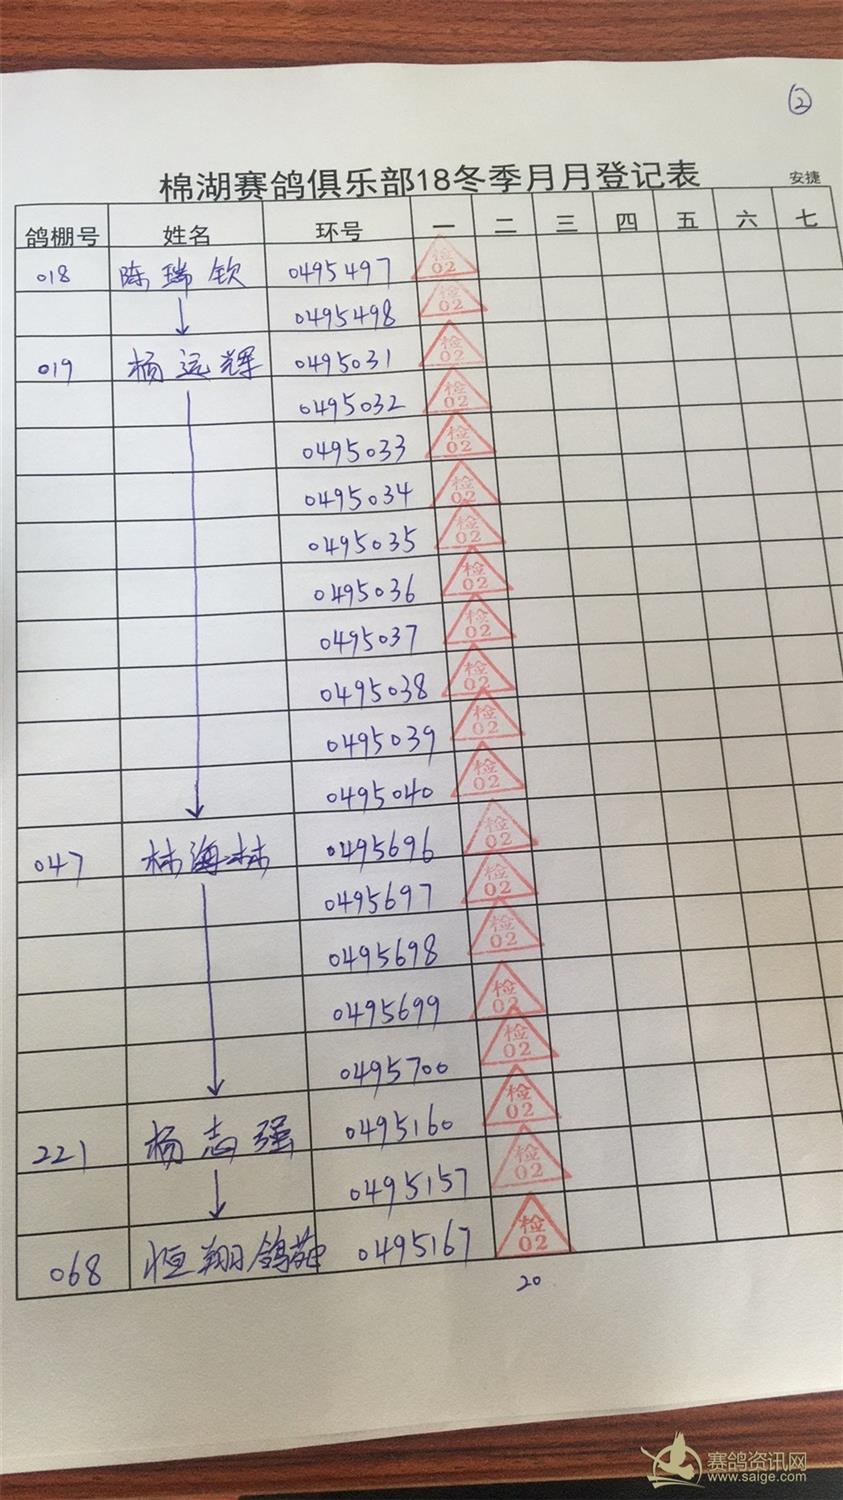 ②
棉湖赛鸽俱乐部18冬季月月登记表 安捷
鸽棚号 姓名 环号 一 二 三 四 五 六 七
018 陈瑞钦 0495497 检02
↓ 0495498 检02
019 杨远辉 0495031 检02
0495032 检02
0495033 检02
0495034 检02
0495035 检02
0495036 检02
0495037 检02
0495038 检02
0495039 检02
0495040 检02
047 林海林 0495696 检02
0495697 检02
0495698 检02
0495699 检02
0495700 检02
221 杨志强 0495160 检02
↓ 0495157 检02
068 恒翔鸽苑 0495167 检02
20
赛鸽资讯网
www.saige.com